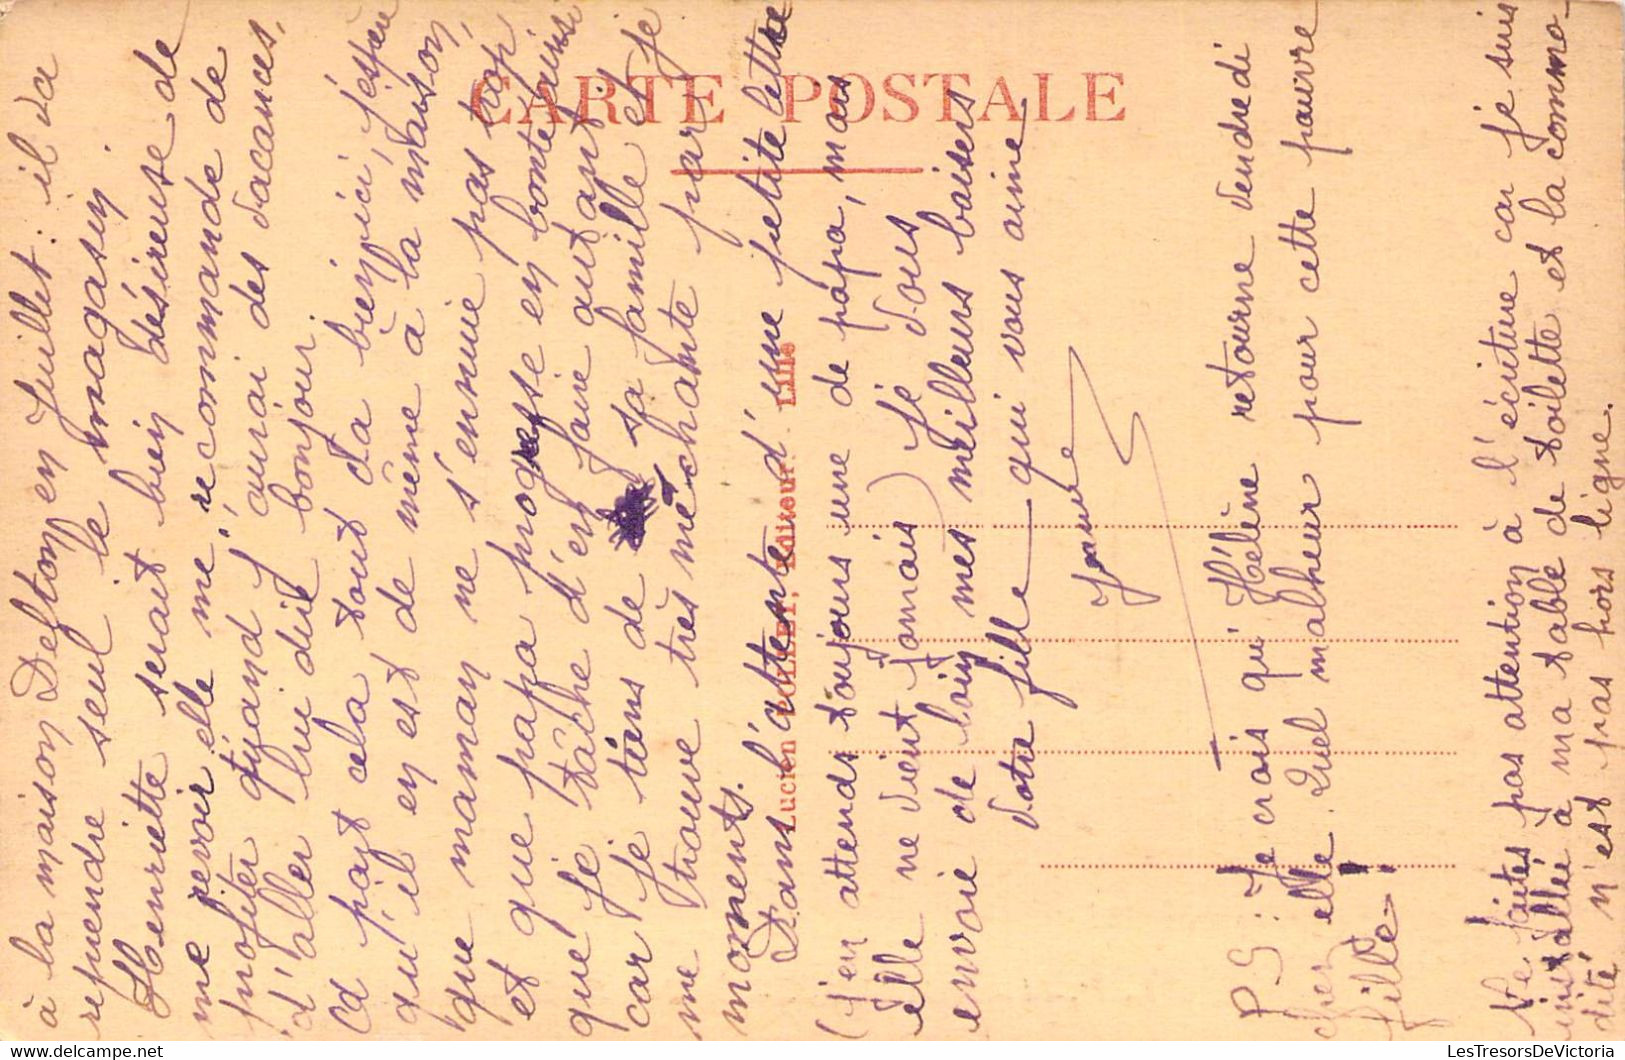 à la maison Defton en Juillet : il va
reprendre seul le magasin.
Henriette serait bien désireuse de
me revoir elle me recommande de
profiter quand j'aurai des vacances,
d'aller lui dire bonjour.
A part cela tout va bien ici, j'espère
qu'il en est de même à la maison,
que maman ne s'ennuie pas trop
et que papa progresse en bonté ainsi
que je tâche d'en faire autant
car je tiens de sa famille et je
me trouve très méchante par
moments.
Dans l'attente d'une petite lettre
(j'en attends toujours une de papa, mais
elle ne vient jamais) je vous
envoie de loin mes meilleurs baisers
votre fille qui vous aime
CARTE POSTALE
Lucien POLLET, Editeur. Lille
P.S : Je crois qu'Hélène retourne vendredi
chez elle. Quel malheur pour cette pauvre
fille!
Ne faites pas attention à l'écriture car je suis
installée à ma table de toilette et la commo-
dité n'est pas hors ligne.
LesTresorsDeVictoria